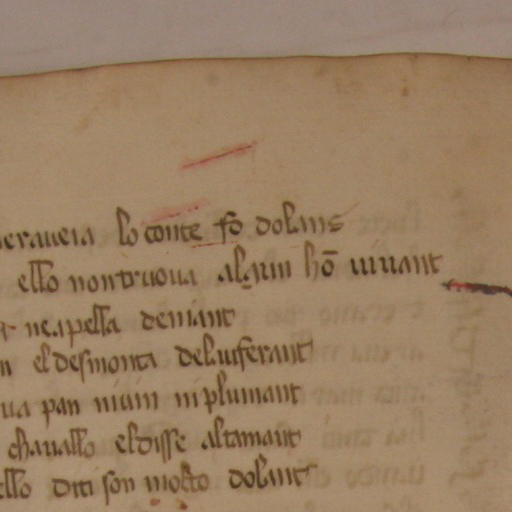 lo conte fo dolans
ello non truova alqun hō vivant
ne apella denant
el desmonta del auferant
va pan nium ni plumant
chavallo el disse altamant
ello diti son molto dolant